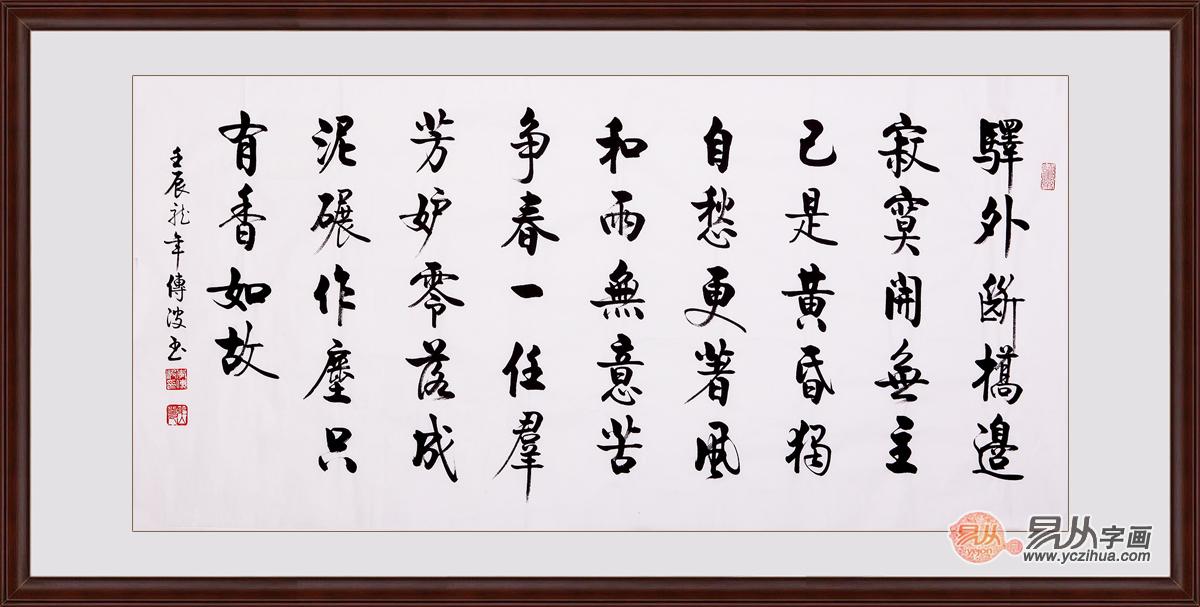 驛外斷橋邊
寂寞開無主
已是黃昏獨
自愁更著風
和雨無意苦
争春一任羣
芳妒零落成
泥碾作塵只
有香如故
壬辰龍年傳波書
易从字画
yicon
www.yczihua.com